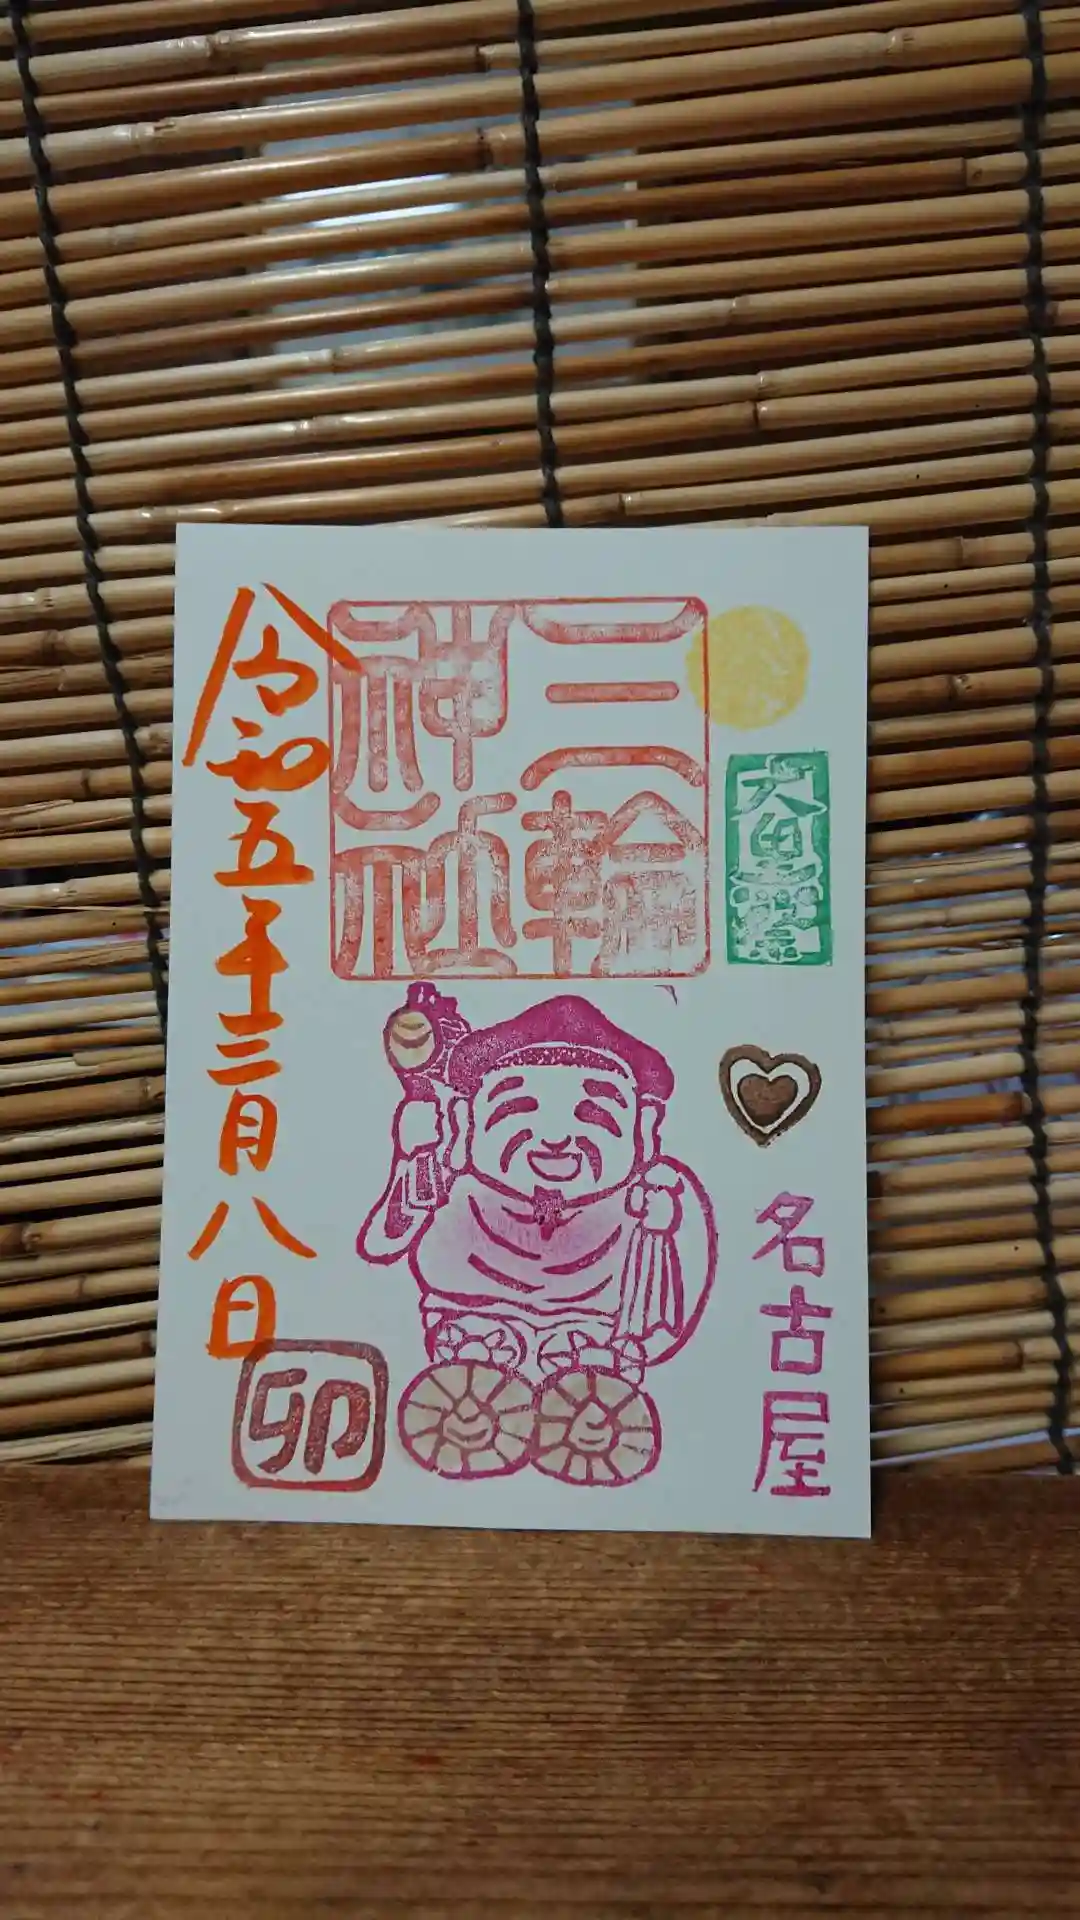 大黒祭
名古屋
三輪
神社
令和五年三月八日
卯